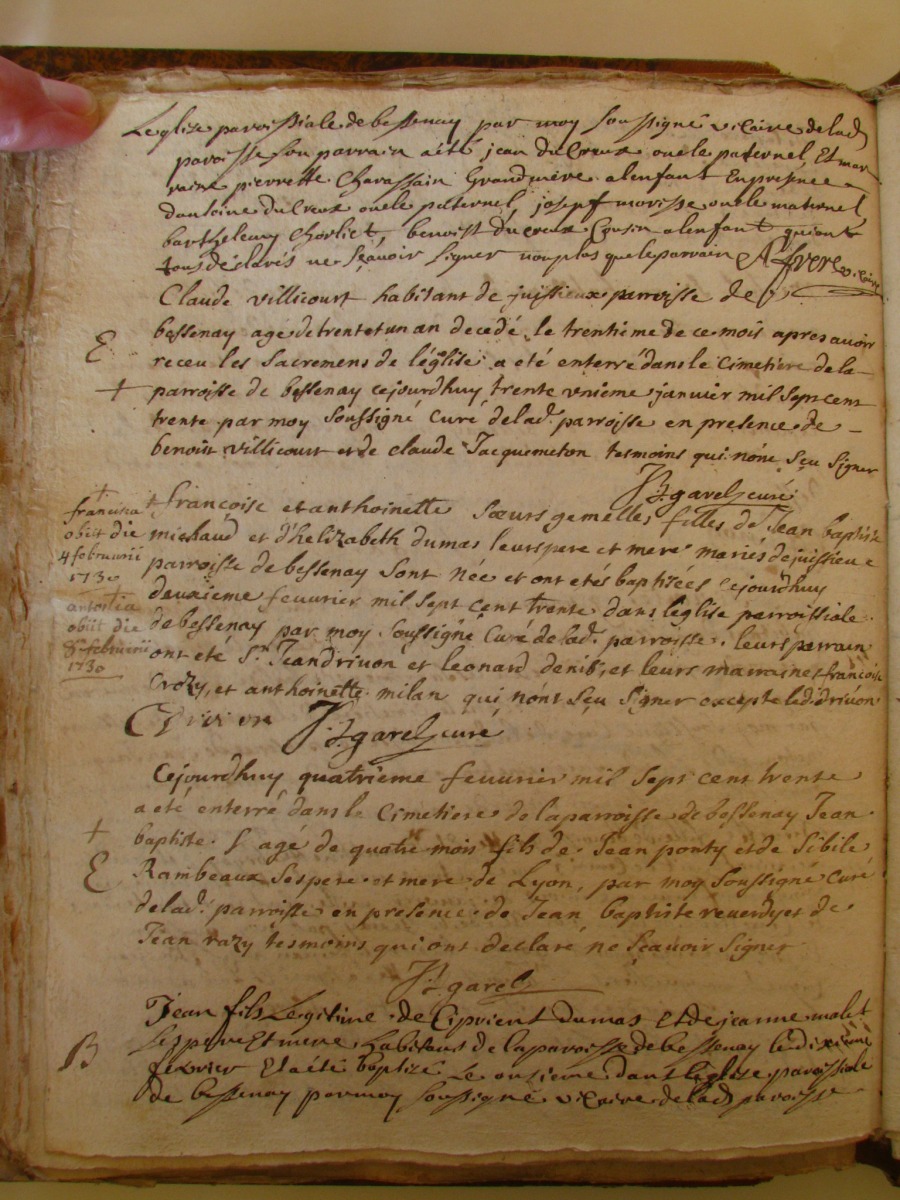 Leglise paroissiale de bessenay par moy soussigné vicaire de lad
paroisse son parrain a été jean du Creux oncle paternel, Et mar
raine pierrette Chavassain Grandmère a lenfant En presence
dantoine du Creux oncle paternel, josepf morisse oncle maternel,
barthelemy Chorliet, benoist du creux Cousin a lenfant qui ont
tous déclarés ne sçavoir signer non plus que le parrain AFfvere vicaire
Claude villicourt habitant de juissieux parroisse de
E
bessenay agé de trente et un an decedé le trentième de ce mois apres avoir
receu les sacremens de léglise a eté enterré dans le cimetiere de la
+ parroisse de bessenay cejourdhuy trente unième janvier mil sept cent
trente par moy soussigné curé de lad. parroisse en presence de
benoist villicourt et de claude Jacquemeton tesmoins qui nóne sçu signer
J B garel curé
+ françoise et anthoinette sœurs gemelles filles de Jean baptiste
michaud et d'helizabeth dumas leurs pere et mere mariés de juissieu e
parroisse de bessenay sont née et ont etés baptisées cejourdhuy
deuxieme feuvrier mil sept cent trente dans léglise parroissiale
de bessenay par moy soussigné curé de lad. parroisse. leurs parrain
ont été Sr. Jean drivon et leonard denis, et leurs marraines françoise
Crozy, et anthoinette milan qui nont sçu signer excepte led. drivon
+
francisca
obiit die
4 februarii
1730
antonia
obiit die
8a februarii
1730
Drivon J B garel curé
Cejourdhuy quatrième feuvrier mil sept cent trente
a eté enterré dans le cimetiere de la parroisse de bessenay Jean
+
baptiste agé de quatre mois fils de Jean ponty et de sibile
E
Rambeaux ses pere et mere de Lyon, par moy soussigné curé
de lad. parroisse en presence de Jean baptiste reverdy et de
Jean razy tesmoins qui ont declaré ne sçavoir signer
J B garel
Jean fils Legitime de Ciprient dumas Et de jeanne malet
B
ses pere Et mere habitans de la paroisse de bessenay le dixieme
fevrier Et a été baptizé Le onzieme dans léglise paroissiale
de bessenay par moy soussigné vicaire de lad paroisse